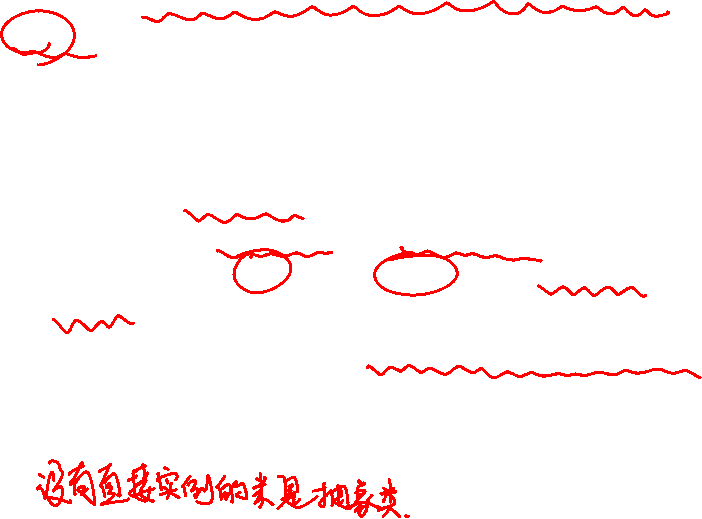 没有直接实例的类是抽象类.